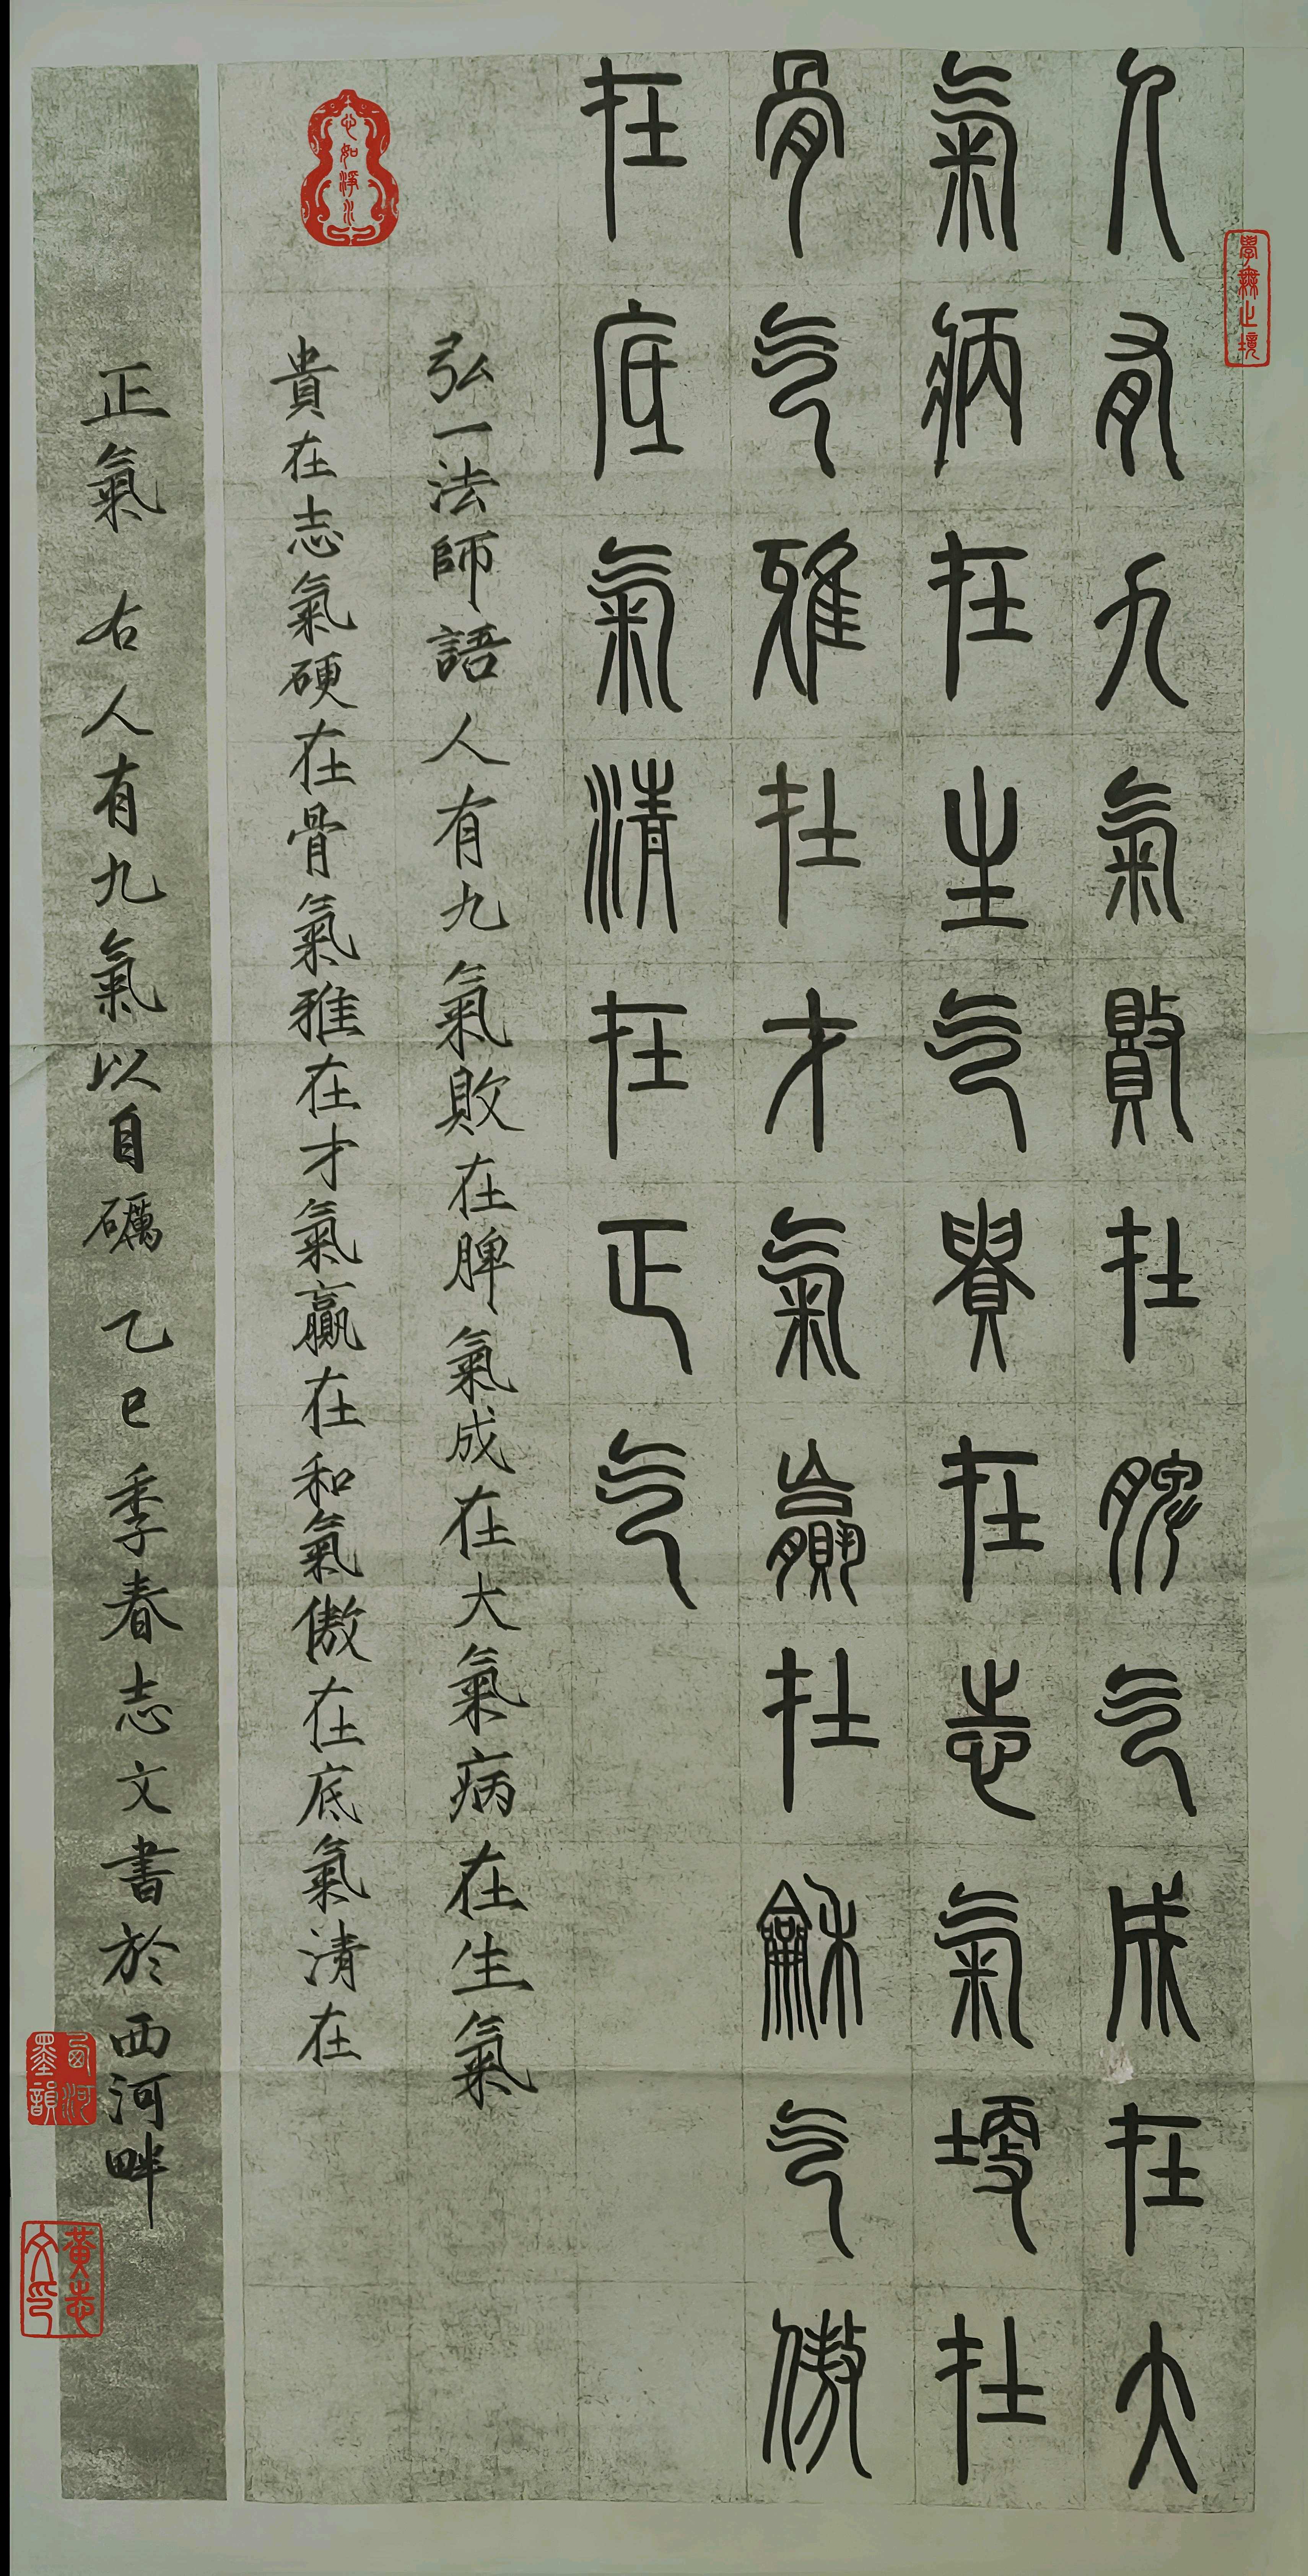 學無止境
人有九氣敗在脾气成在大
氣病在生气貴在志氣硬在
骨气雅在才氣贏在和气傲
在底氣清在正气
弘一法師語人有九氣敗在脾氣成在大氣病在生氣
心如淨水
貴在志氣硬在骨氣雅在才氣贏在和氣傲在底氣清在
正氣 右人有九氣以自礪 乙巳季春志文書於西河畔
西河墨韻
黃志文印